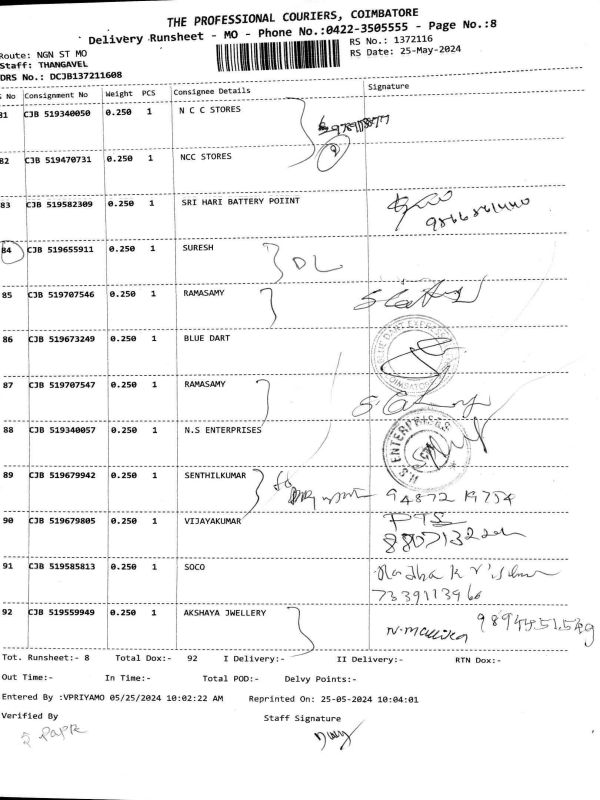 THE PROFESSIONAL COURIERS, COIMBATORE
Delivery Runsheet - MO - Phone No.:0422-3505555 - Page No.:8
Route: NGN ST MO RS No.: 1372116
Staff: THANGAVEL RS Date: 25-May-2024
DRS No.: DCJB137211608
S No Consignment No Weight PCS Consignee Details Signature
81 CJB 519340050 0.250 1 N C C STORES
82 CJB 519470731 0.250 1 NCC STORES
83 CJB 519582309 0.250 1 SRI HARI BATTERY POIINT
84 CJB 519655911 0.250 1 SURESH DL
85 CJB 519707546 0.250 1 RAMASAMY
86 CJB 519673249 0.250 1 BLUE DART
87 CJB 519707547 0.250 1 RAMASAMY
88 CJB 519340057 0.250 1 N.S ENTERPRISES
N.S. ENTERPRISES
89 CJB 519679942 0.250 1 SENTHILKUMAR 94872 19754
90 CJB 519679805 0.250 1 VIJAYAKUMAR
91 CJB 519585813 0.250 1 SOCO
7339113960
92 CJB 519559949 0.250 1 AKSHAYA JWELLERY N. Mallika
Tot. Runsheet:- 8 Total Dox:- 92 I Delivery:- II Delivery:- RTN Dox:-
Out Time:- In Time:- Total POD:- Delvy Points:-
Entered By :VPRIYAMO 05/25/2024 10:02:22 AM Reprinted On: 25-05-2024 10:04:01
Verified By Staff Signature